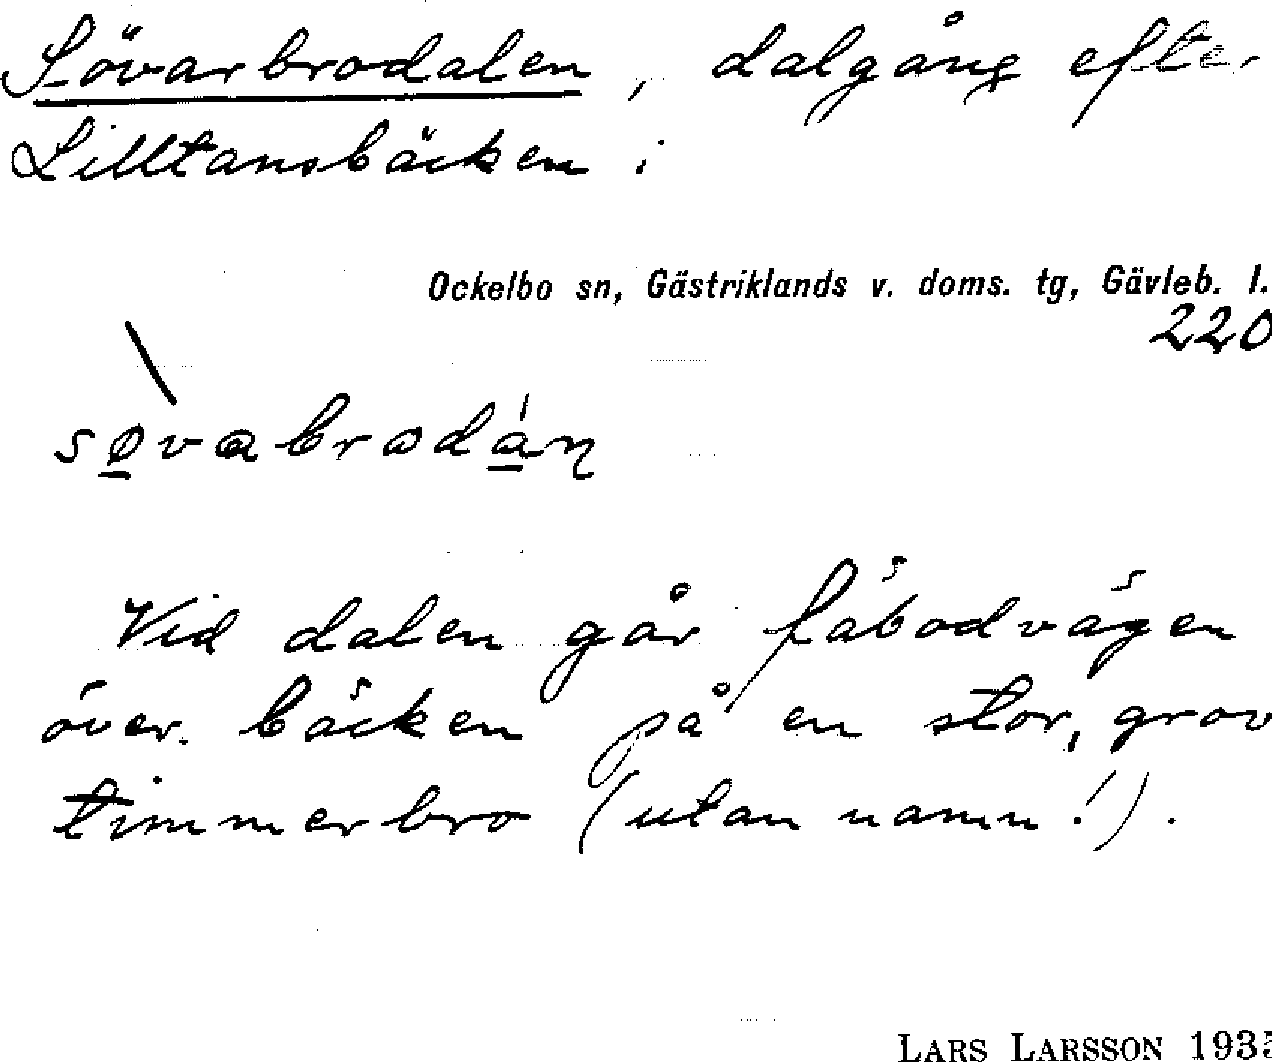 Sövarbrodalen, dalgång efter
Lilltansbäcken:
Ockelbo sn, Gästriklands v. doms. tg, Gävleb. l.
220
søvabrodán
Vid dalen går fäbodvägen
över bäcken på en stor, grov
timmerbro (utan namn!).
LARS LARSSON 1935